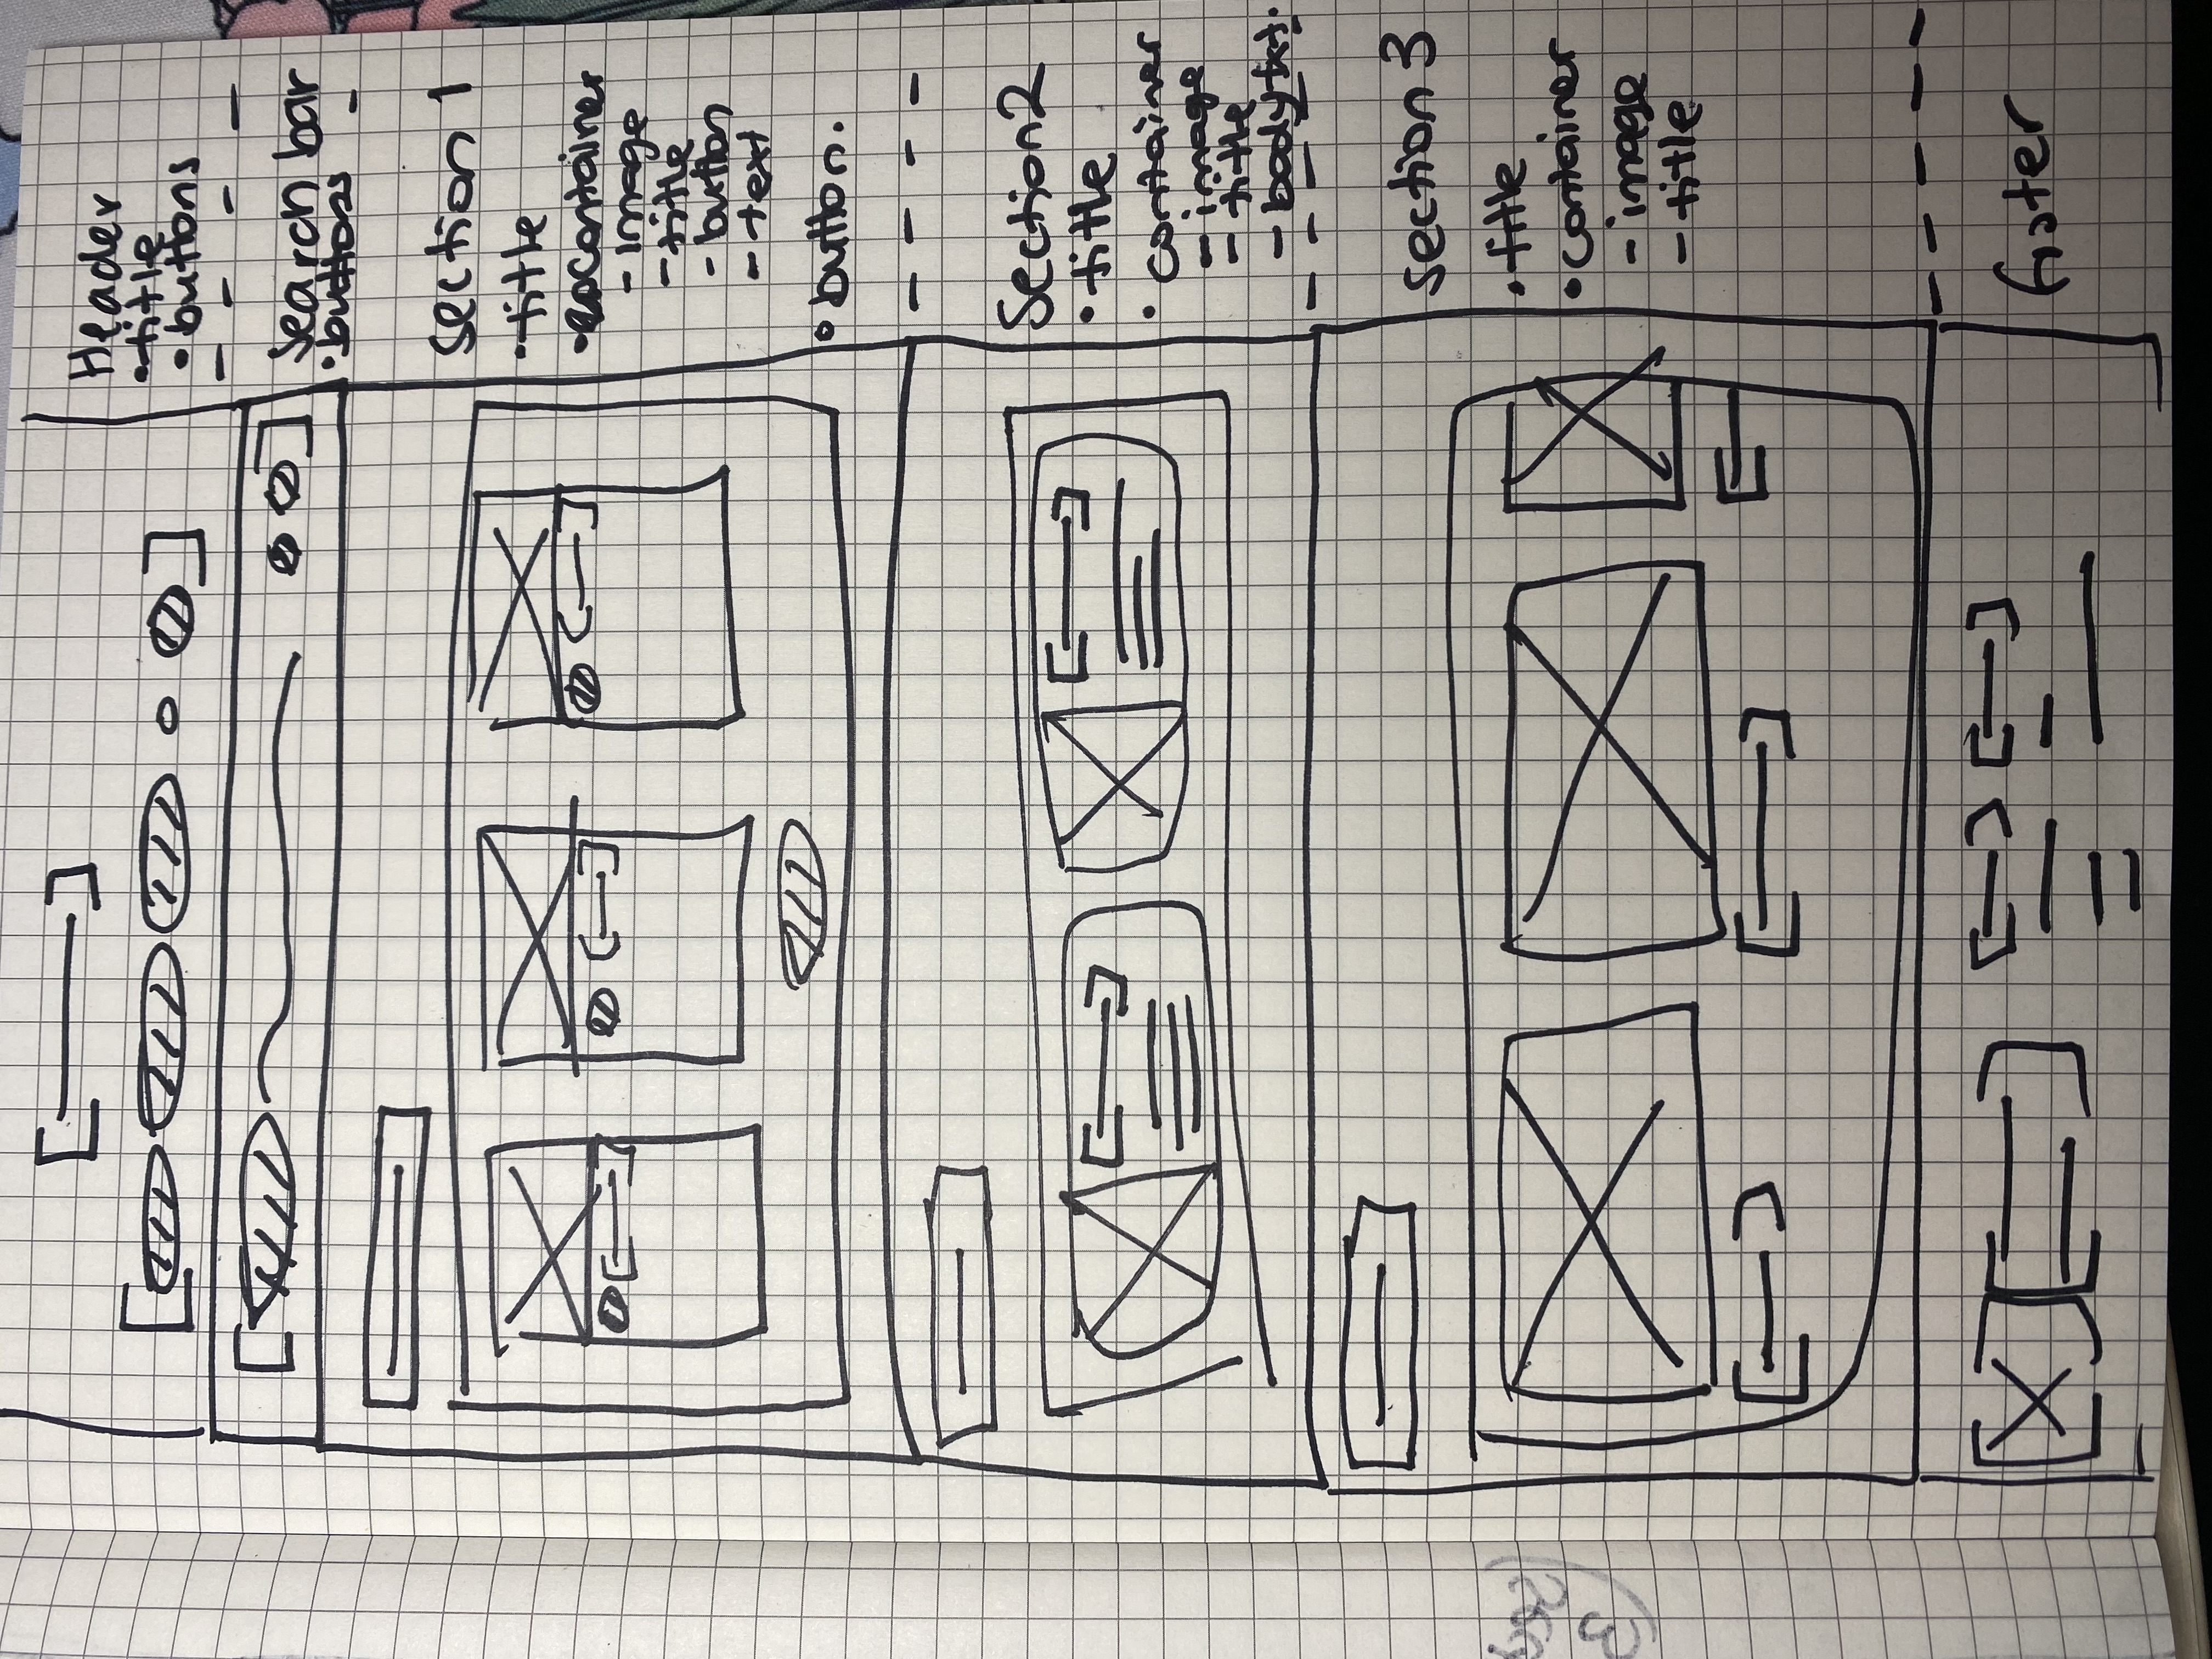 Header
•title
•buttons
Search bar
•buttons
section 1
•title
•container
- image
- title
- button
- text
• button.
Section2
• title
• container
- image
- title
- body txt.
section 3
• title
• container
- image
- title
footer